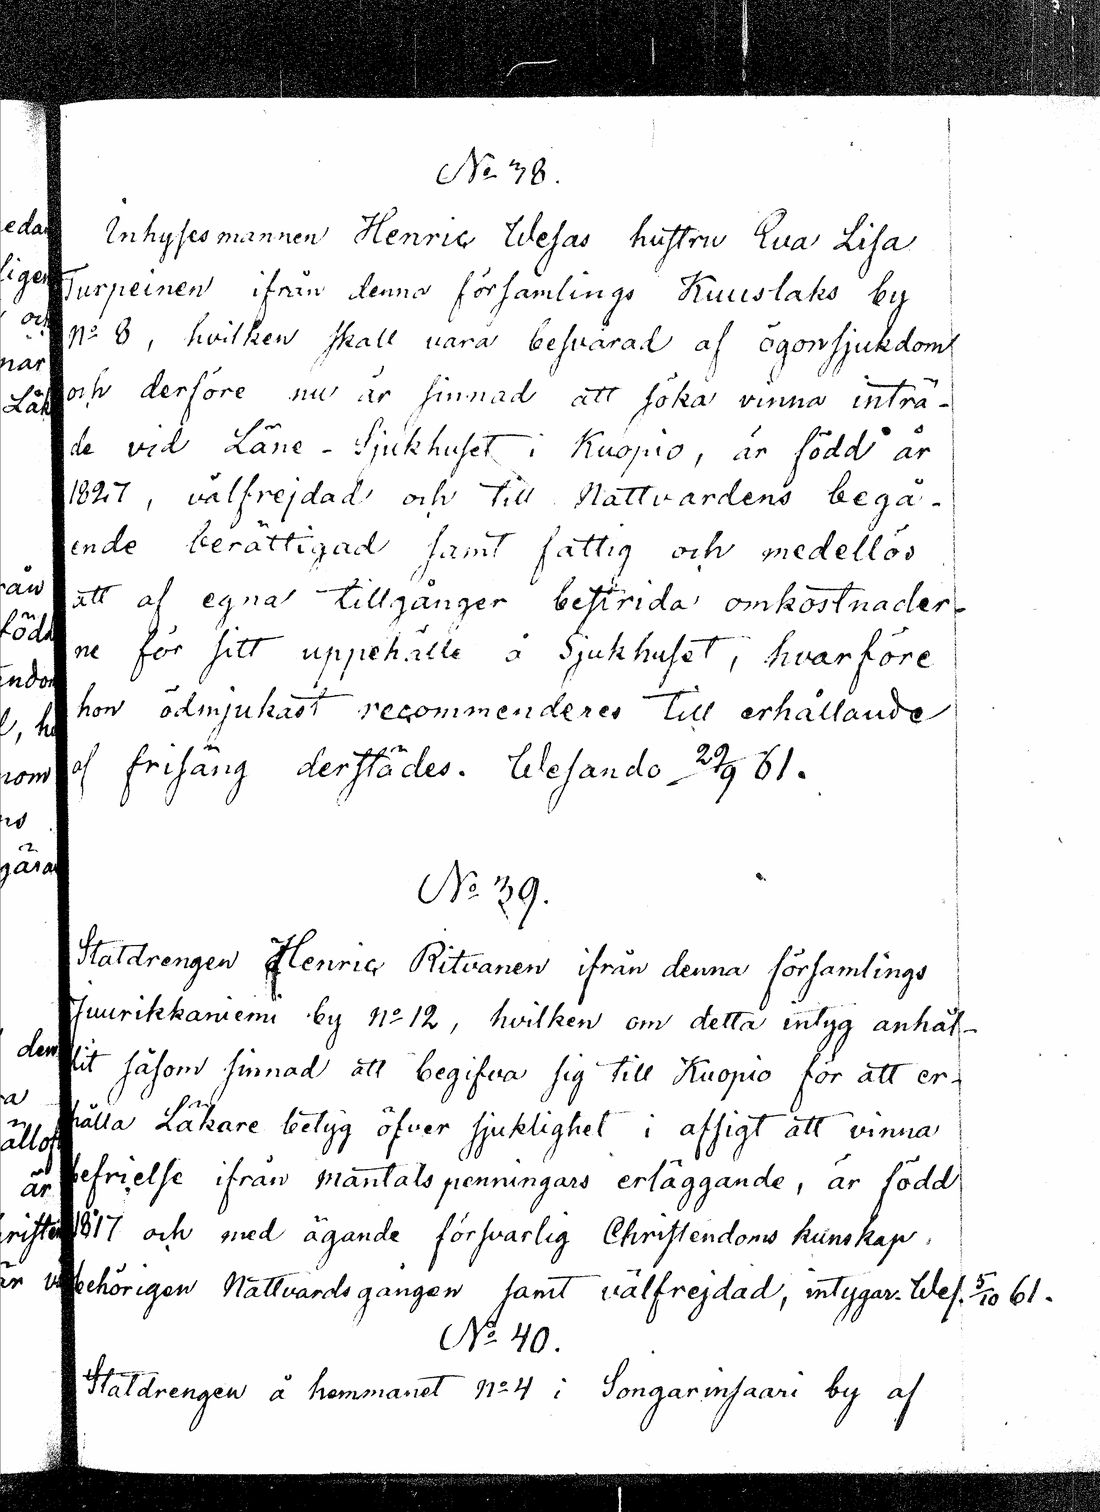 No 38.
Inhysesmannen Henric Wesas hustru Eva Lisa
Turpeinen ifrån denna församlings Kuuslaks by
No 8, hvilken skall vara besvärad af ögonsjukdom
och derföre nu är sinnad att söka vinna inträ-
de vid Läne-Sjukhuset i Kuopio, är född år
1827, välfrejdad och till Nattvardens begå-
ende berättigad samt fattig och medellös
att af egna tillgånger bestrida omkostnader-
ne för sitt uppehälle å Sjukhuset, hvarföre
hon ödmjukast recommenderes till erhållande
af frisäng derstädes. Wesando 29/9 61.
No 39.
Statdrengen Henric Ritvanen ifrån denna församlings
Juurikkaniemi by No 12, hvilken om detta intyg anhål-
lit såsom sinnad att begifva sig till Kuopio för att er-
hålla Läkare betyg öfver sjuklighet i afsigt att vinna
befrielse ifrån mantalspenningars erläggande, är född
1817 och med ägande försvarlig Christendoms kunskap
behörigen Nattvardsgången samt välfrejdad, intygar. Wes. 5/10 61.
No 40.
Statdrengen å hemmanet No 4 i Songarinsaari by af